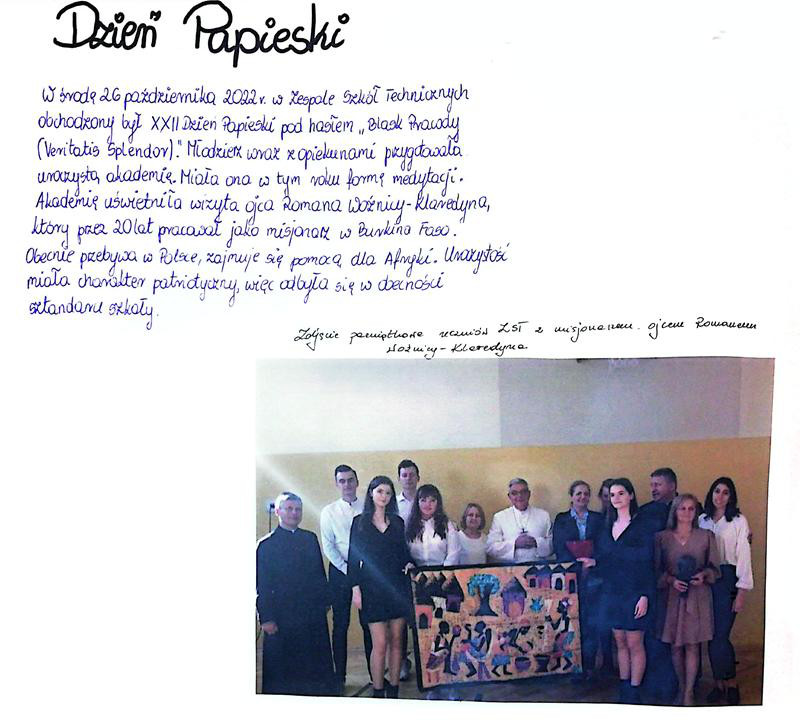 Dzień Papieski
W środę 26 października 2022 r. w Zespole Szkół Technicznych
obchodzony był XXII Dzień Papieski pod hasłem „Blask Prawdy
(Veritatis Splendor)." Młodzież wraz z opiekunami przygotowała
uroczystą akademię. Miała ona w tym roku formę medytacji.
Akademię uświetniła wizyta ojca Romana Woźnicy-Klaredyna,
który przez 20 lat pracował jako misjonarz w Burkina Faso.
Obecnie przebywa w Polsce, zajmuje się pomocą dla Afryki. Uroczystość
miała charakter patriotyczny, więc odbyła się w obecności
sztandaru szkoły.
Zdjęcie pamiątkowe uczniów ZST z misjonarzem. ojcem Romanem
Woźnicy-Klaredyna